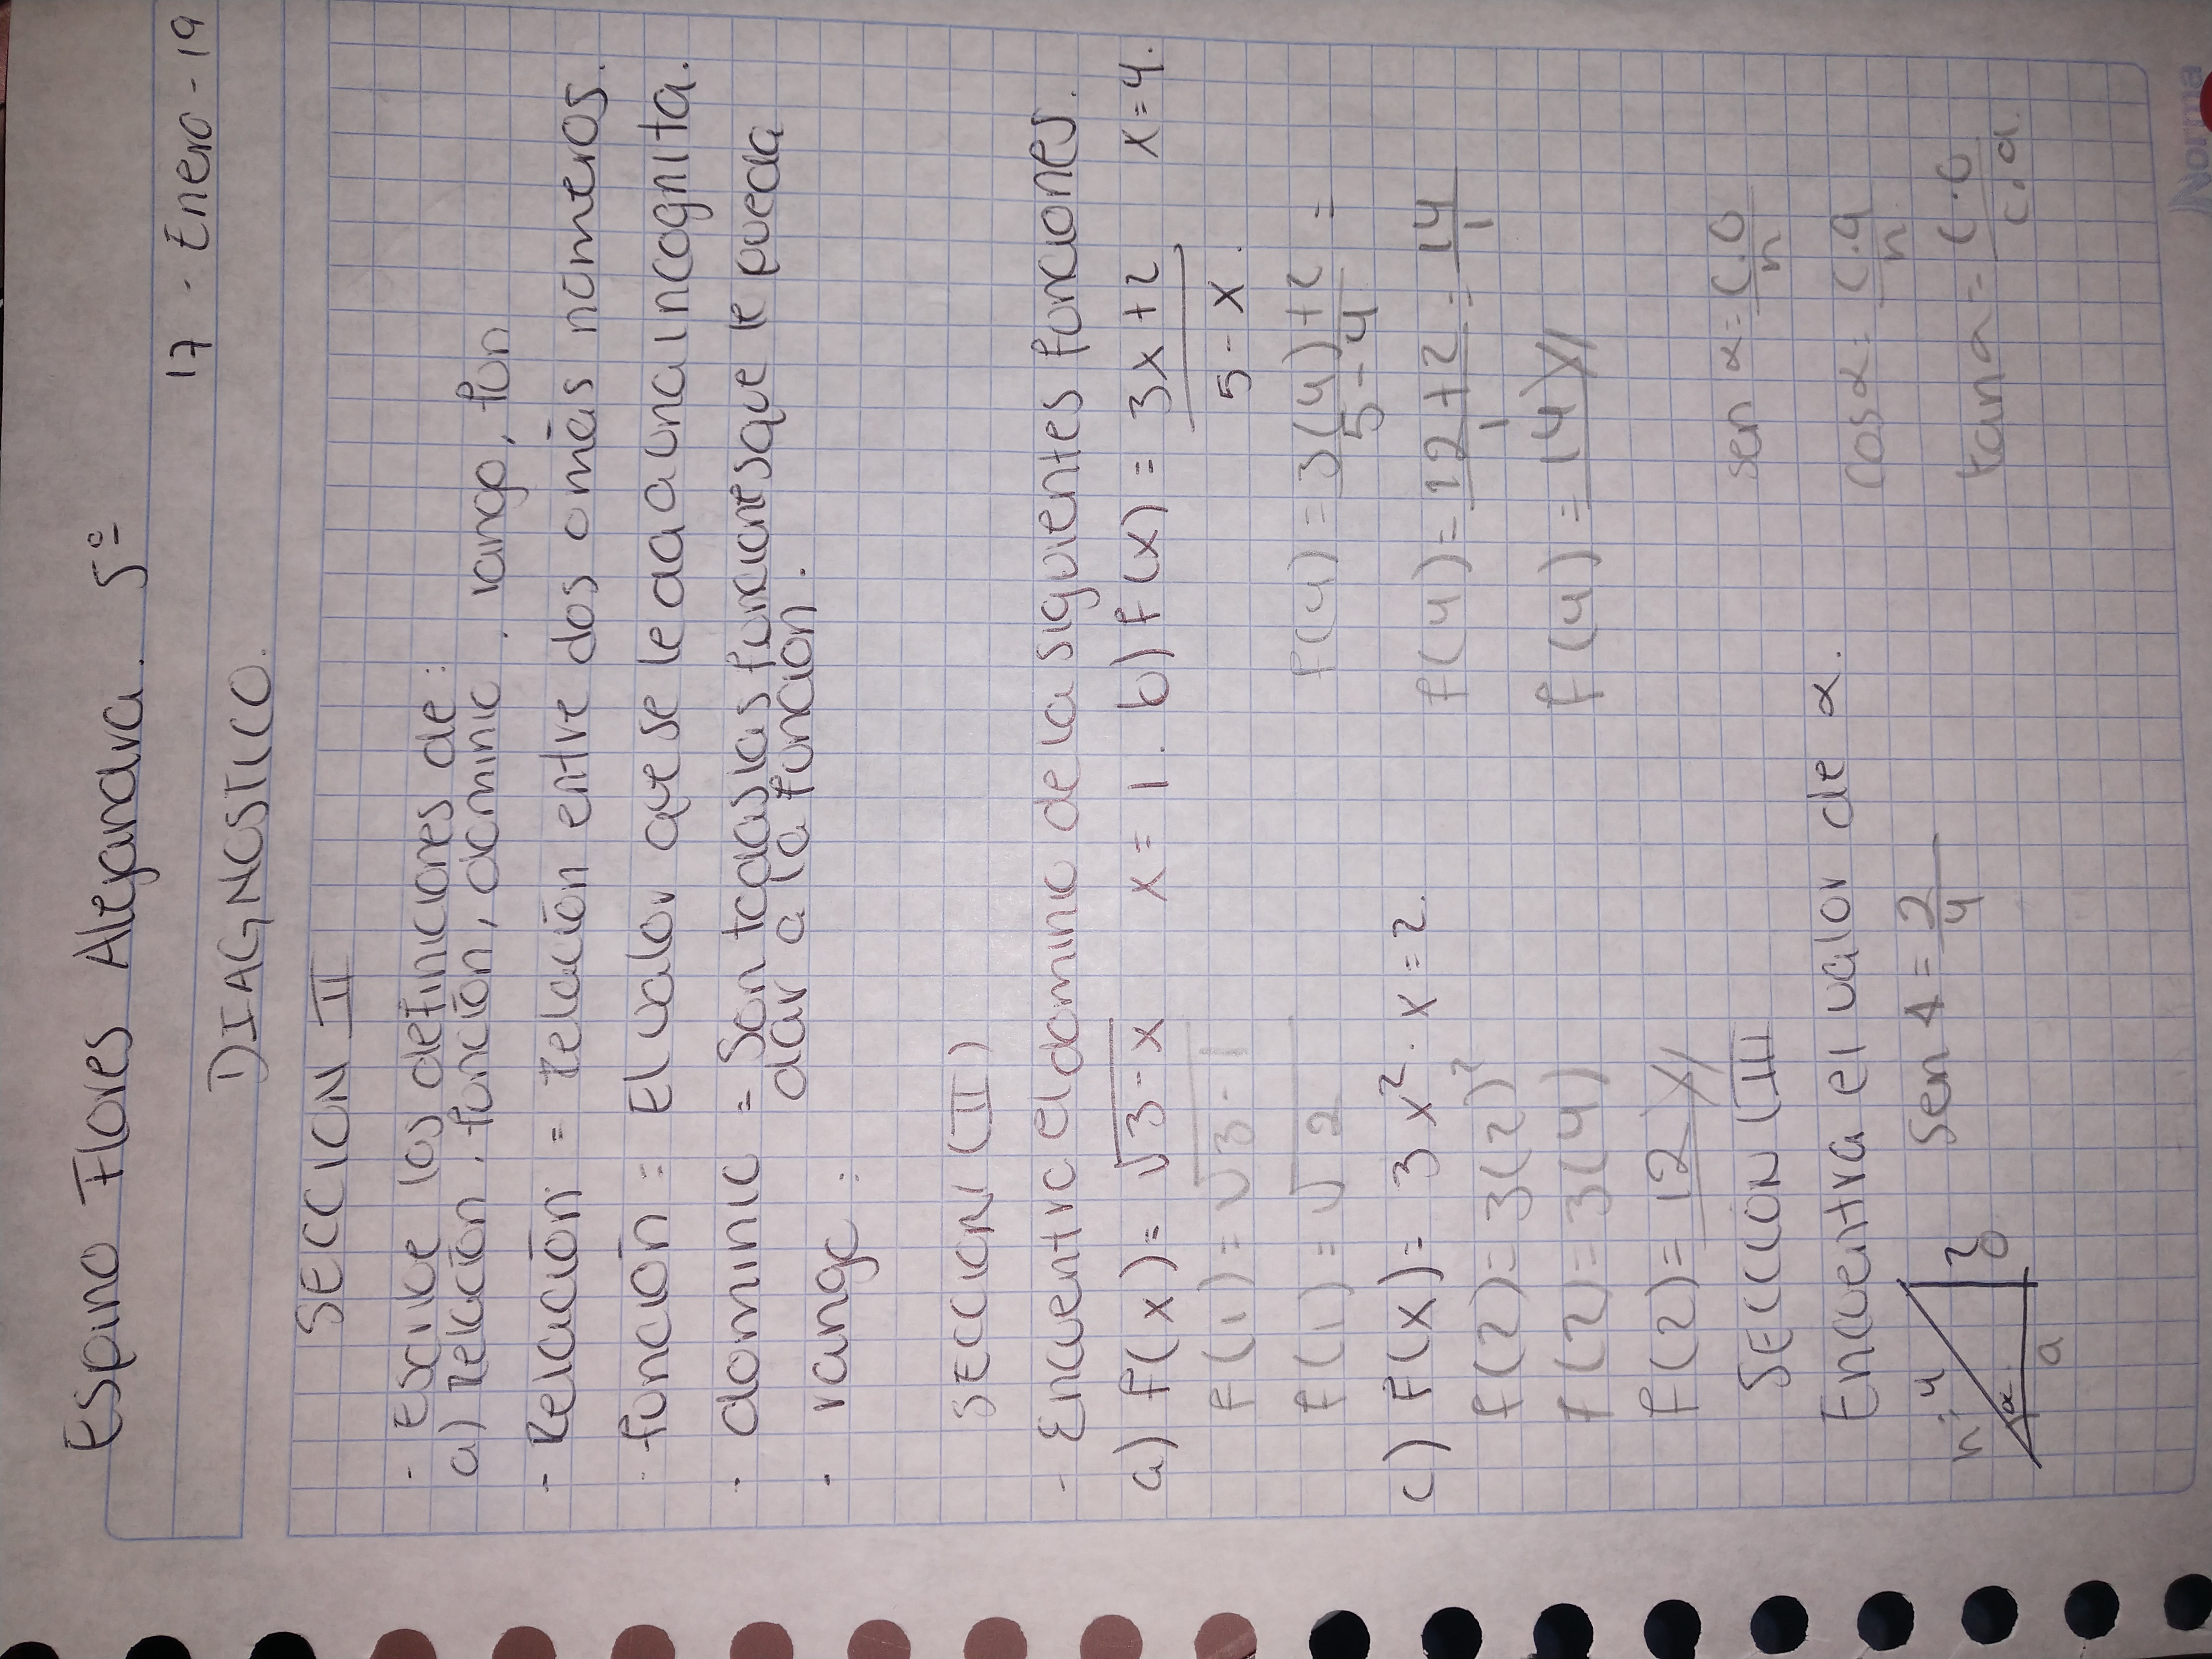 Espino Flores Alejandra. 5º
17 - Enero - 19
DIAGNOSTICO.
SECCION II
- Escribe las definiciones de:
a) relación, función, dominio, rango, fun
- Relación = relación entre dos o más números.
- función = El valor que se le da a una incognita.
- dominio = Son todas las funciones que le pueda
dar a la función.
- rango :
SECCION (II)
- Encuentra el dominio de la siguientes funciones.
a) f(x) = √3-x x = 1. b) f(x) = 3x+2 / 5-x. x=4.
f(1) = √3-1 f(4) = 3(4)+2 / 5-4 =
f(1) = √2 f(4) = 12+2 / 1 = 14 / 1
c) f(x) = 3x². x=2.
f(2) = 3(2)² f(4) = 14
f(2) = 3(4)
f(2) = 12
sen α = c.o / h
SECCION (III
Encuentra el valor de α. cos α = c.a / h
h=4 2 o a α
sen 4 = 2 / 4 tan α = c.o / c.a.
Norma